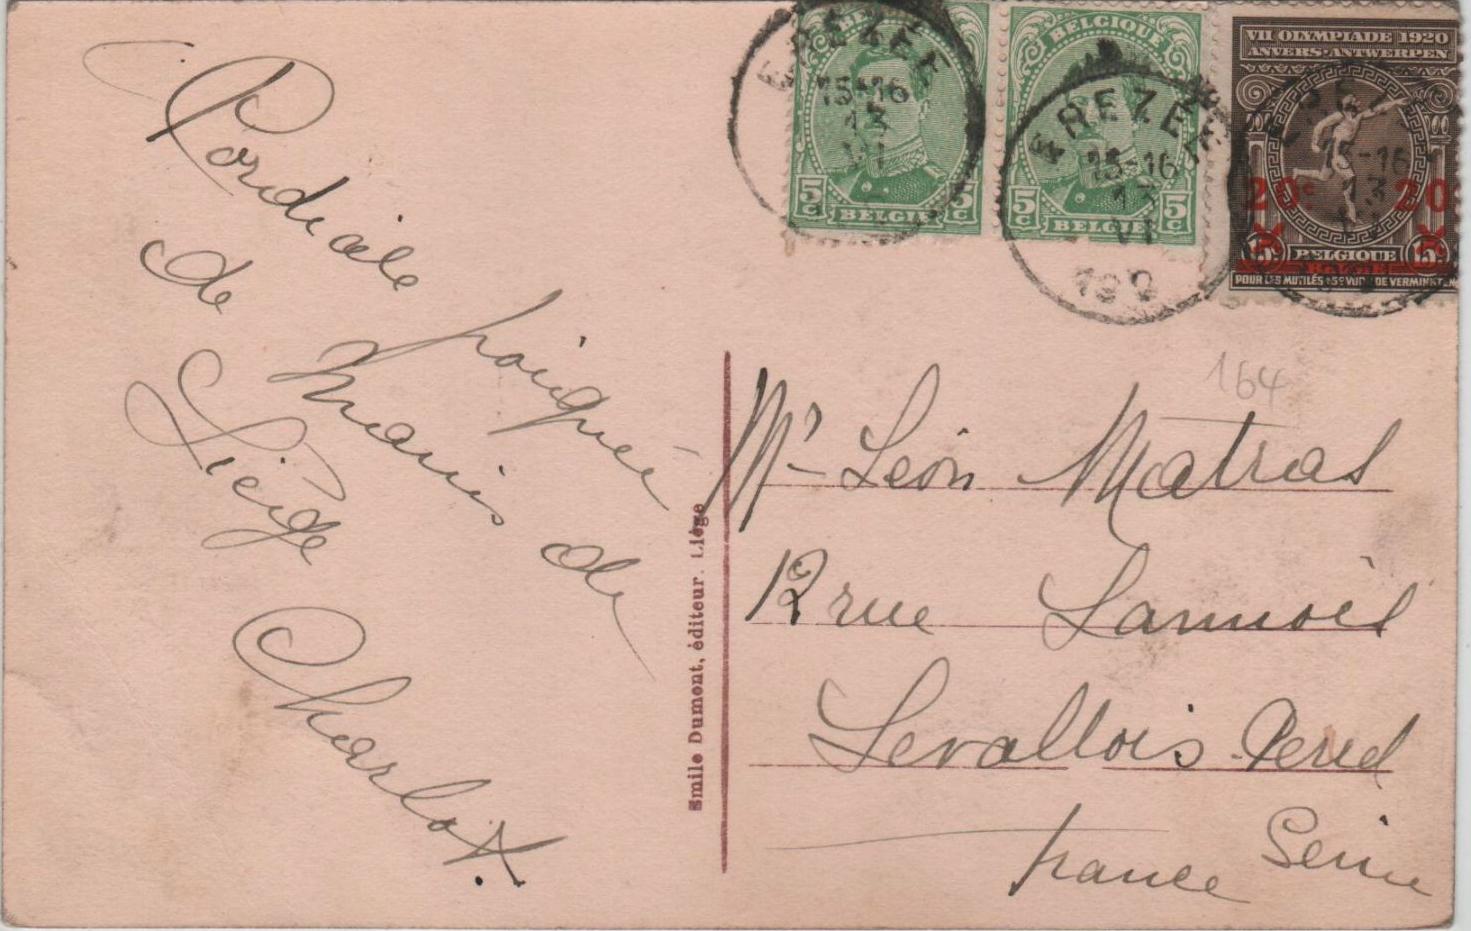 Cordiale poignée
de mains de
Liège
Charlot
Emile Dumont, éditeur. Liége
BELGIQUE
5c BELGIE 5c
BELGIQUE
5c BELGIE 5c
VII OLYMPIADE 1920
ANVERS-ANTWERPEN
20c 20
15 BELGIQUE 15
BELGIE
POUR LES MUTILÉS+5c VOOR DE VERMINKTEN
EREZÉE
15-16
13
VI
EREZÉE
15-16
13
VI
192
EREZÉE
15-16
13
164
Mr Léon Matras
12 rue Lannois
Levallois-Perret
France Seine